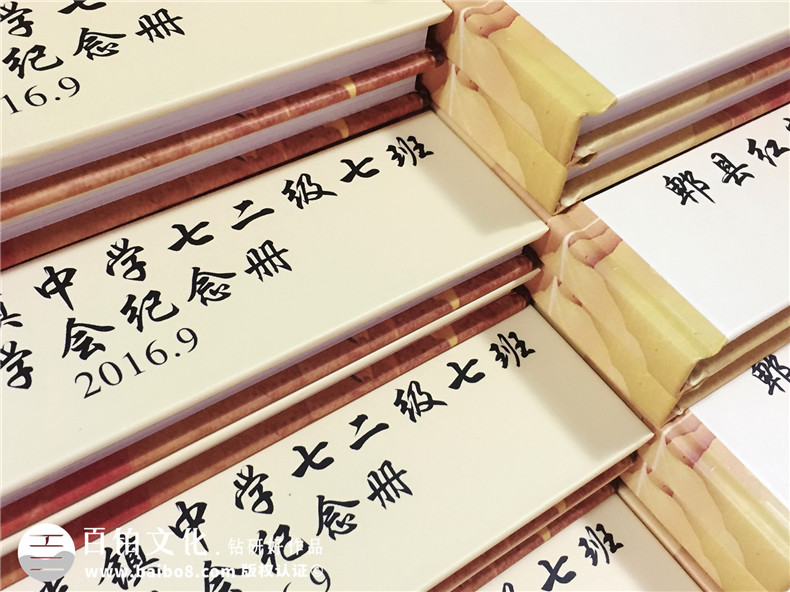 学七
纪念册
2016.9
中学七二级七班
学会纪念册
2016.9
郫县红
镇中学七二级七班
会纪念册
6.9
郫
七班
百铂文化
钻研好作品
www.baibo8.com 版权认证©